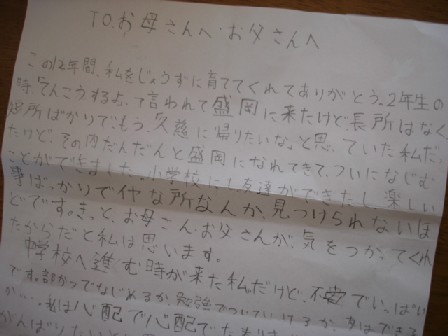 TO.お母さんへ・お父さんへ
この12年間、私をじょうずに育ててくれてありがとう。2年生の
時「てんこうするよ」って言われて盛岡に来たけど、長所はな
短所ばかりで、もう、「久慈に帰りたいな。」と思っていた私だ
たけど、その内だんだんと盛岡になれてきて、ついになじむ
ことができました。小学校にも友達ができたし、楽しい
事ばっかりでイヤな所なんか、見つけられないほ
どです。きっと、お母さん・お父さんが、気をつかってくれ
たからだと私は思います。
中学校へ進む時が来た私だけど、不安でいっぱい
です。部かつでなじめるか、勉強でついていけるか
が…私は心配で心配で